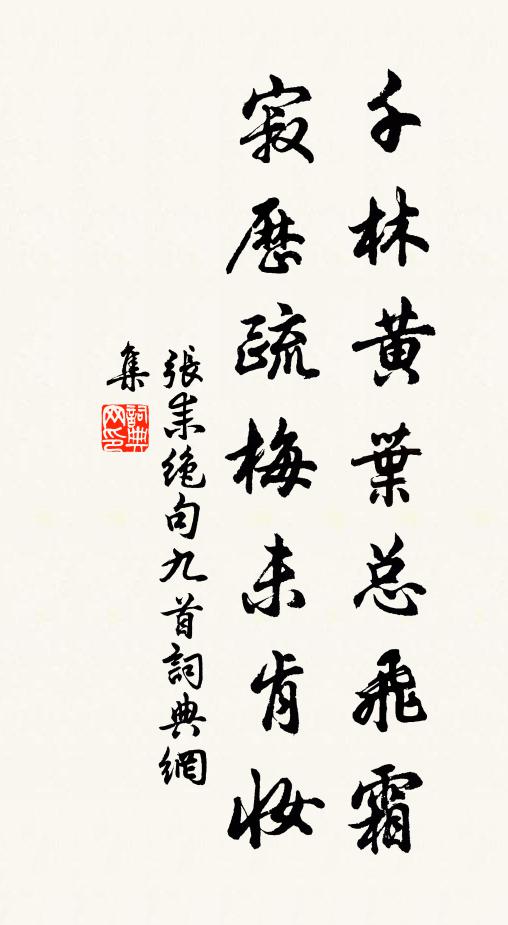 千林黄葉总飛霜
寂歷疏梅未肯妝
張耒绝句九首詞典網
集
詞典网印